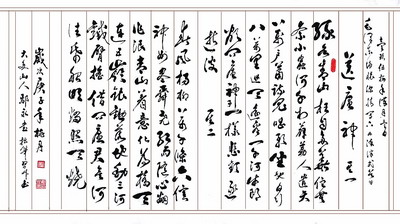 送瘟神 其一
綠水青山枉自多華佗無
奈小虫何千村薜荔人遺矢
萬户蕭疏鬼唱歌坐地日行
八萬里巡天遥看一千河牛郎
欲問瘟神事一樣悲歡逐
逝波 其二
春風楊柳萬千條六億
神州盡舜堯紅雨隨心翻
作浪青山着意化爲橋天
連五嶺銀鋤落地動三河
鐵臂摇借問瘟君欲何
往紙船明燭照天燒
歲次庚子年梅月